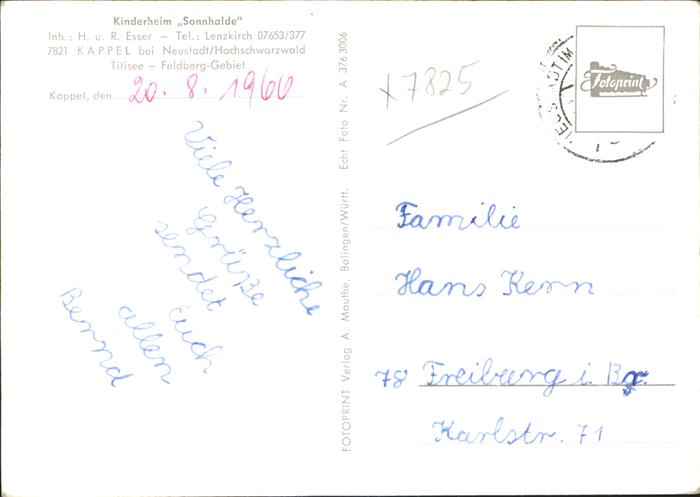 Kinderheim „Sonnhalde"
Inh.: H. u. R. Esser — Tel.: Lenzkirch 07653/377
7821 KAPPEL bei Neustadt/Hochschwarzwald
Titisee — Feldberg-Gebiet
Kappel, den 20. 8. 1966
Viele Herzliche
Grüße
sendet
Euch
allen
Bernd
FOTOPRINT Verlag A. Mauthe, Balingen/Württ. Echt Foto Nr. A 376 3006
x 7825
Fotoprint
Familie
Hans Kern
78 Freiburg i. Br.
Karlstr. 71